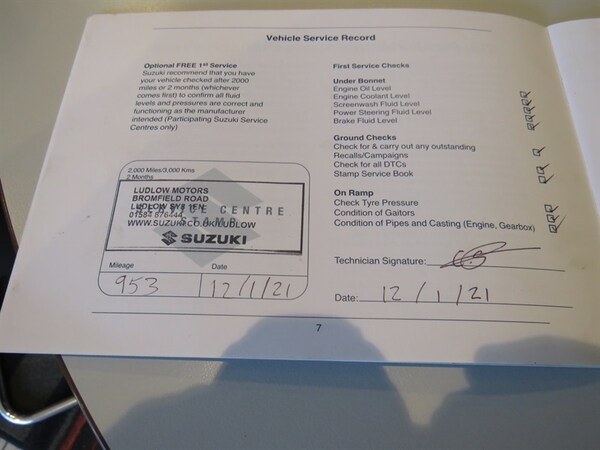 Vehicle Service Record
Optional FREE 1st Service
Suzuki recommend that you have
your vehicle checked after 2000
miles or 2 months (whichever
comes first) to confirm all fluid
levels and pressures are correct and
functioning as the manufacturer
intended (Participating Suzuki Service
Centres only)
2,000 Miles/3,000 Kms
2 Months
LUDLOW MOTORS
BROMFIELD ROAD
LUDLOW SY8 1EN
SERVICE CENTRE
01584 876444
STAMP
WWW.SUZUKI.CO.UK/LUDLOW
SUZUKI
Mileage Date
953 12/1/21
First Service Checks
Under Bonnet
Engine Oil Level
Engine Coolant Level
Screenwash Fluid Level
Power Steering Fluid Level
Brake Fluid Level
Ground Checks
Check for & carry out any outstanding
Recalls/Campaigns
Check for all DTCs
Stamp Service Book
On Ramp
Check Tyre Pressure
Condition of Gaitors
Condition of Pipes and Casting (Engine, Gearbox)
Technician Signature:
Date: 12/1/21
7